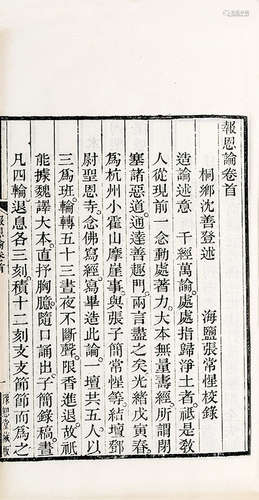 報恩論卷首
桐鄉沈善登述　海鹽張常惺校錄
造論述意　千經萬論處處指歸淨土者祇是敎
人從現前一念動處著力大本無量壽經所謂閉
塞諸惡道通達善趣門兩言盡之矣光緖戊寅春
爲杭州小霍山摩崖事與張子簡常惺等結壇鄧
尉聖恩寺念佛寫經寫畢造此論一壇共五人以
三爲班輪轉五十三晝夜不斷聲限香進退故祇
能據魏譯大本直抒胸臆隨口誦出子簡錄稿晝
凡四輪退息各三刻積十二刻支支節節而爲之
報恩論卷首
一